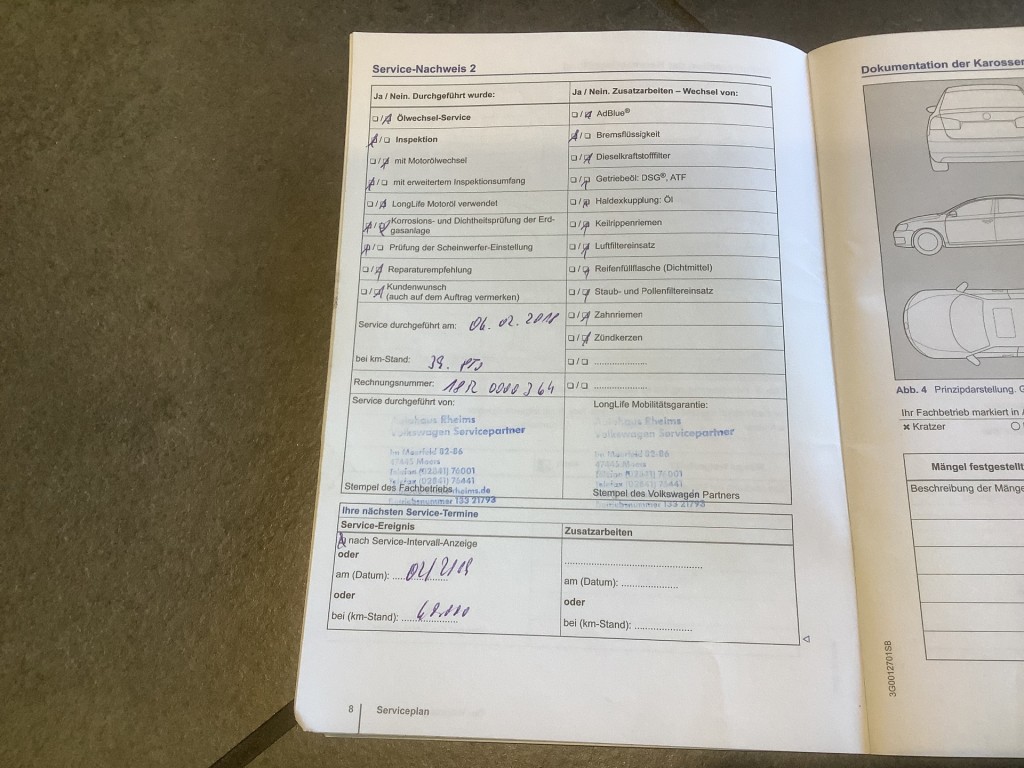 Service-Nachweis 2
Ja / Nein. Durchgeführt wurde:
Ölwechsel-Service
Inspektion
mit Motorölwechsel
mit erweitertem Inspektionsumfang
LongLife Motoröl verwendet
Korrosions- und Dichtheitsprüfung der Erd-
gasanlage
Prüfung der Scheinwerfer-Einstellung
Reparaturempfehlung
Kundenwunsch
(auch auf dem Auftrag vermerken)
Service durchgeführt am: 06.02.2018
bei km-Stand: 39.
Rechnungsnummer: 18R 0000364
Service durchgeführt von:
Autohaus Rheims
Volkswagen Servicepartner
Im Moerfeld 02-06
47445 Moers
Telefon (02841) 76001
Telefax (02841) 76441
Stempel des Fachbetriebs
Ja / Nein. Zusatzarbeiten – Wechsel von:
AdBlue®
Bremsflüssigkeit
Dieselkraftstofffilter
Getriebeöl: DSG®, ATF
Haldexkupplung: Öl
Keilrippenriemen
Luftfiltereinsatz
Reifenfüllflasche (Dichtmittel)
Staub- und Pollenfiltereinsatz
Zahnriemen
Zündkerzen
LongLife Mobilitätsgarantie:
Autohaus Rheims
Volkswagen Servicepartner
47445 Moers
Telefon (02841) 76001
Telefax (02841) 76441
Stempel des Volkswagen Partners
Ihre nächsten Service-Termine
Service-Ereignis
nach Service-Intervall-Anzeige
oder
am (Datum): 02/2019
oder
bei (km-Stand):
Zusatzarbeiten
am (Datum):
oder
bei (km-Stand):
8 Serviceplan
Dokumentation der Karosser
Abb. 4 Prinzipdarstellung.
Ihr Fachbetrieb markiert in
Kratzer
Mängel festgestellt
Beschreibung der Mänge
3G0012701SB